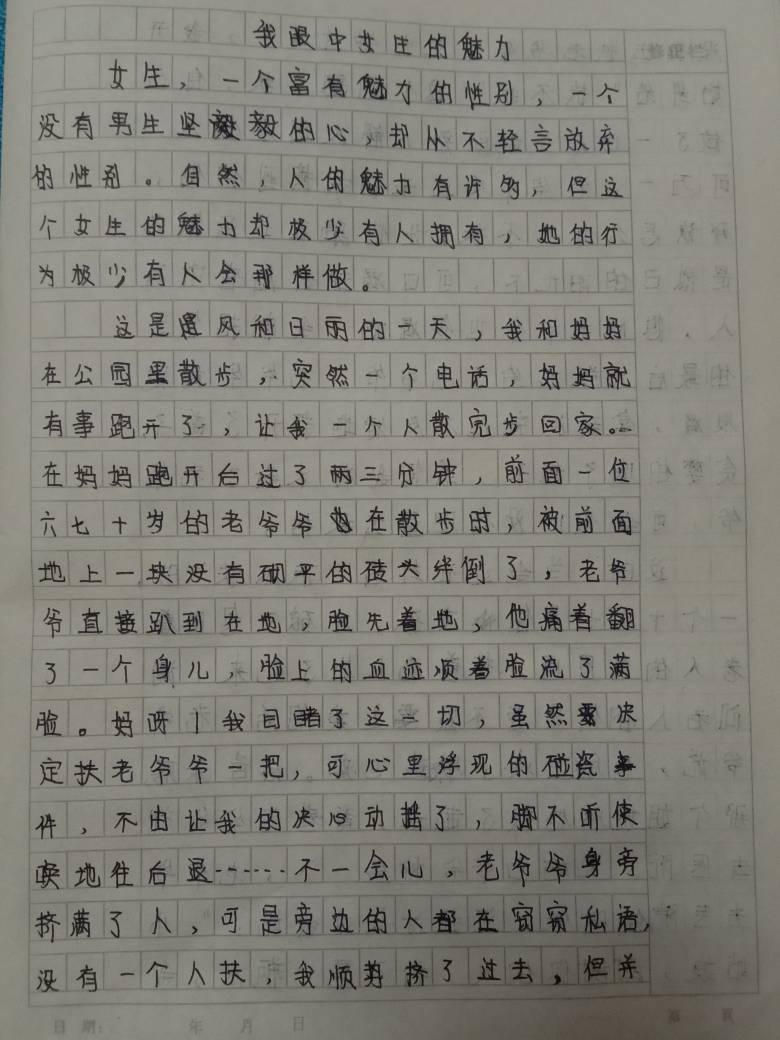 我眼中女生的魅力
女生，一个富有魅力的性别，一个
没有男生坚毅的心，却从不轻言放弃
的性别。自然，人的魅力有许多，但这
个女生的魅力却极少有人拥有，她的行
为极少有人会那样做。
这是遇风和日丽的一天，我和妈妈
在公园里散步，突然一个电话，妈妈就
有事跑开了，让我一个人散完步回家。
在妈妈跑开后过了两三分钟，前面一位
六七十岁的老爷爷在散步时，被前面
地上一块没有砌平的砖头绊倒了，老爷
爷直接趴到在地，脸先着地，他痛着翻
了一个身儿，脸上的血迹顺着脸流了满
脸。妈呀！我目睹了这一切，虽然决
定扶老爷爷一把，可心里浮现的碰瓷事
件，不由让我的决心动摇了，脚不听使
唤地往后退……不一会儿，老爷爷身旁
挤满了人，可是旁边的人都在窃窃私语，
没有一个人扶，我顺势挤了过去，但并
日期： 年 月 日
第 页